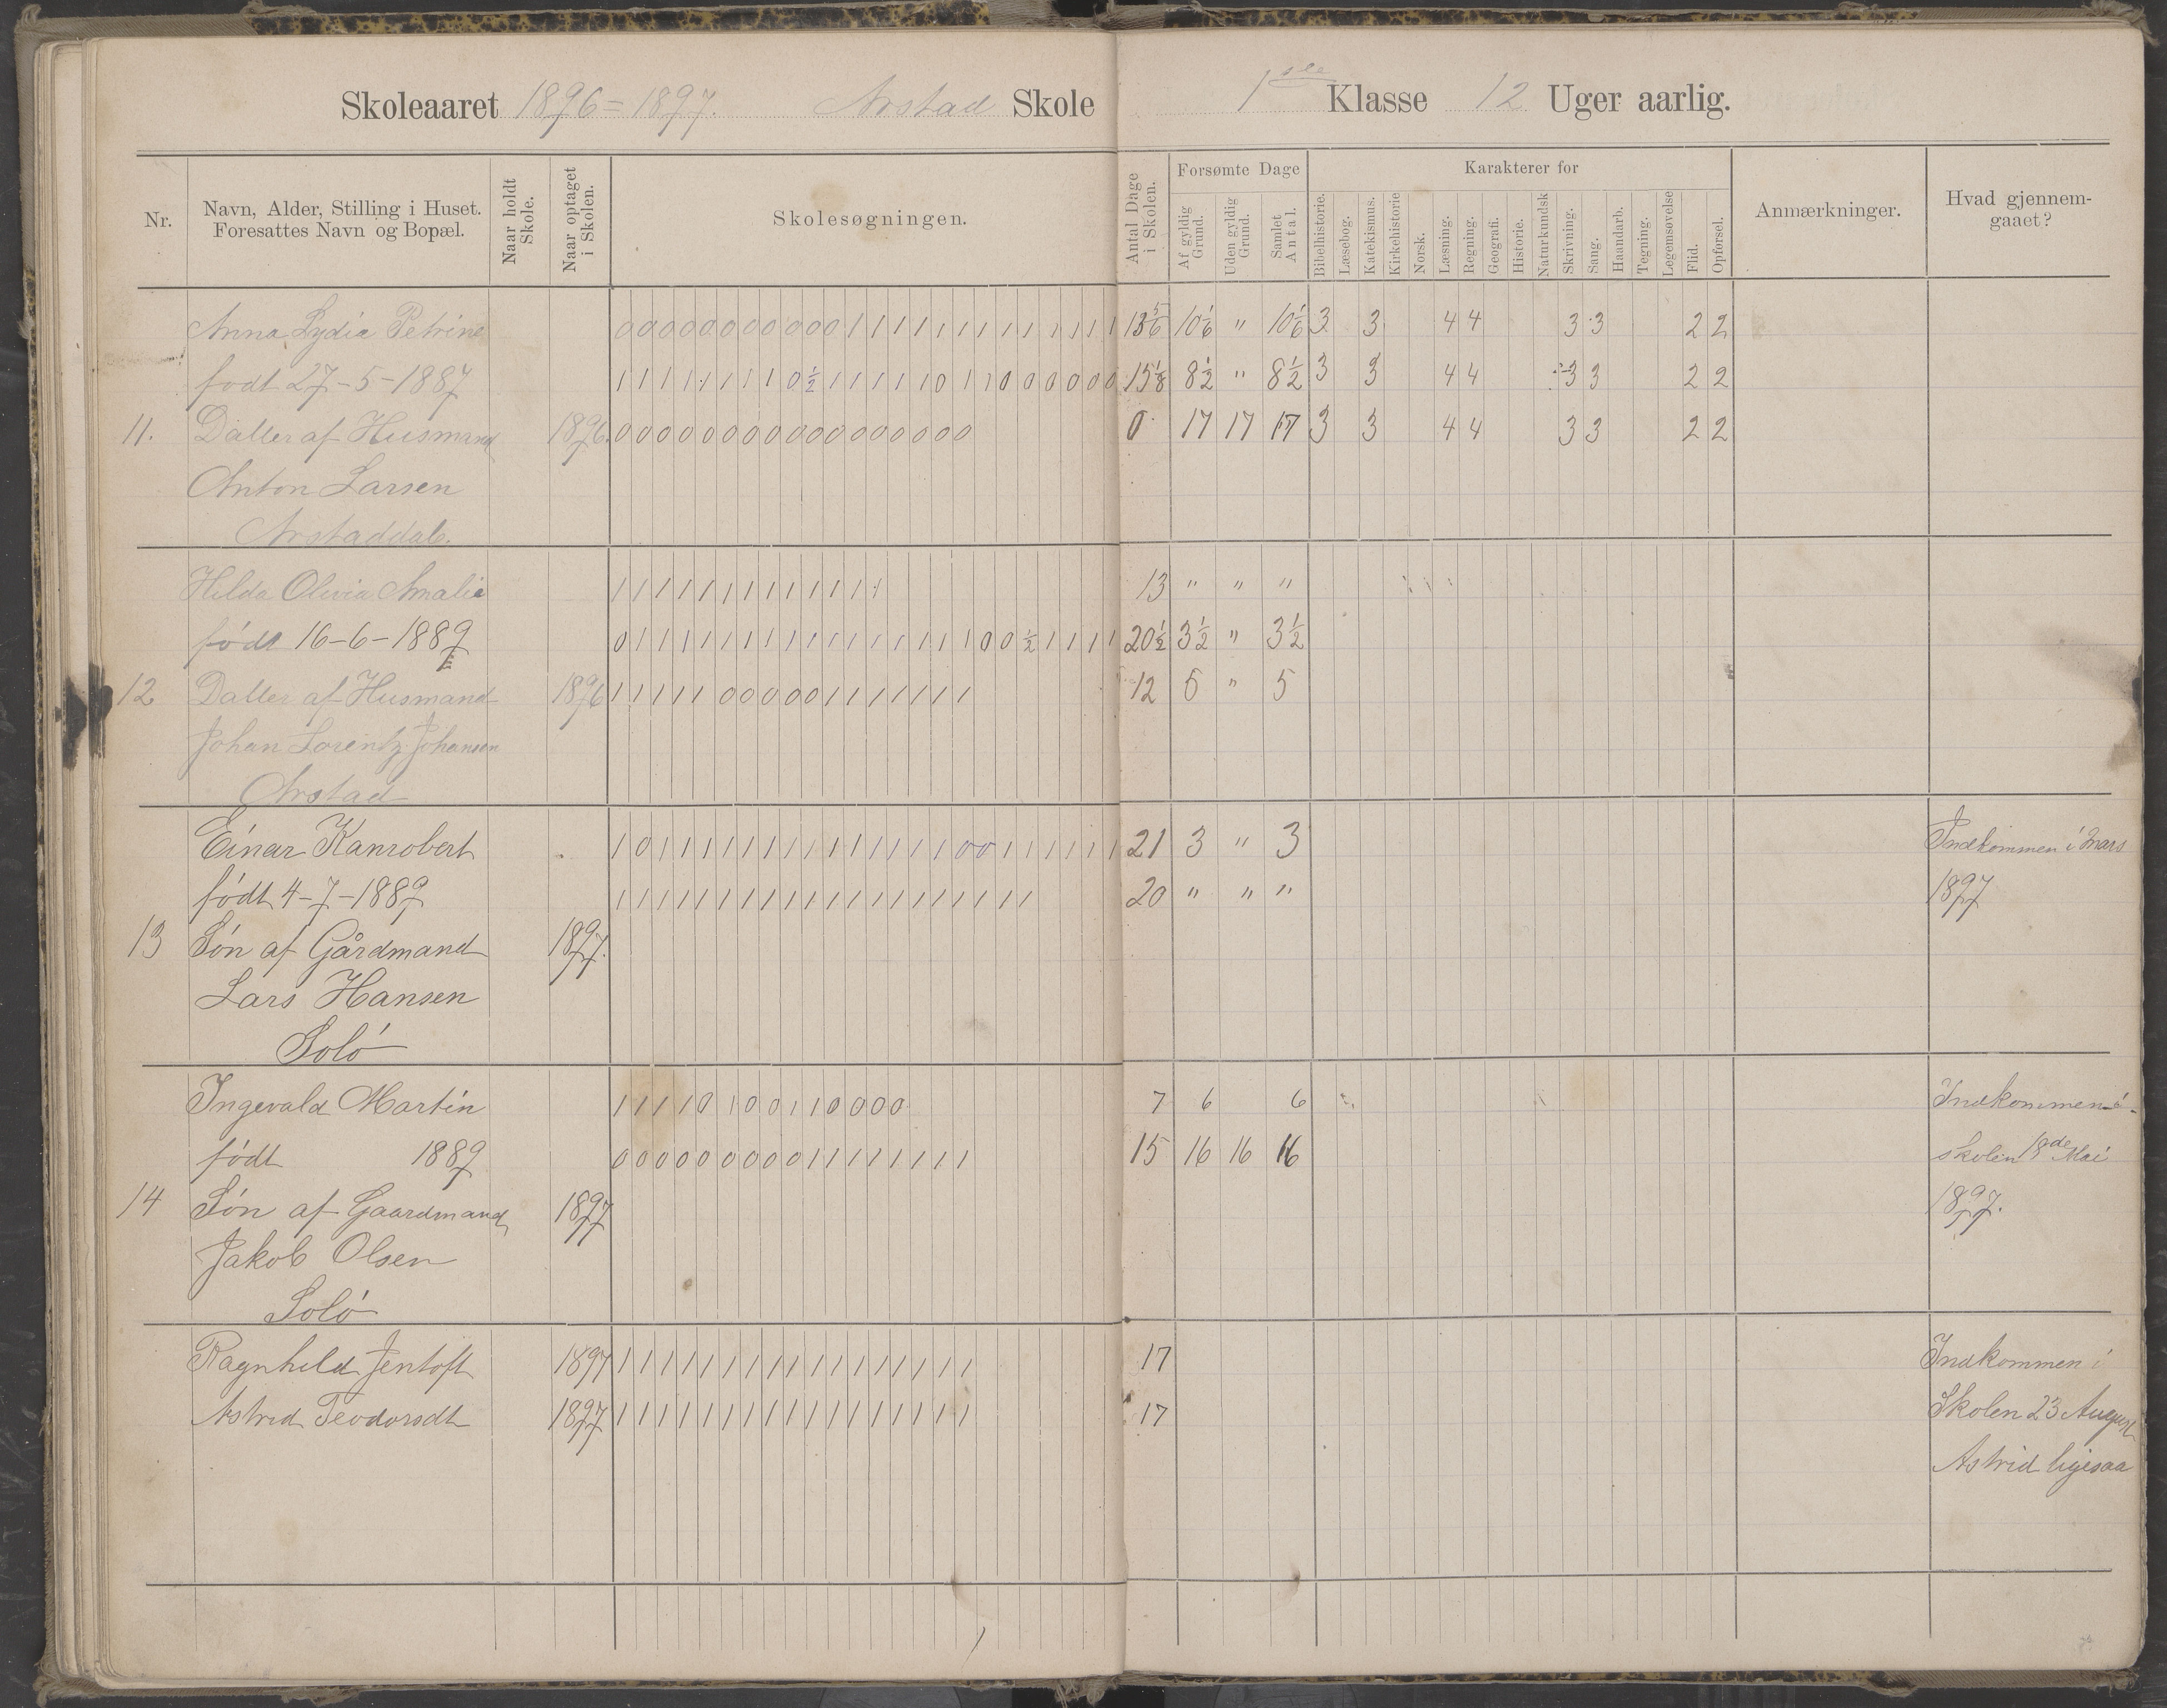 Skoleaaret 1896=1897. Arstad Skole 1ste Klasse 12 Uger aarlig.
Nr.
Navn, Alder, Stilling i Huset.
Foresattes Navn og Bopæl.
Naar holdt Skole.
Naar optaget i Skolen.
Skolesøgningen.
Antal Dage i Skolen.
Forsømte Dage
Af gyldig Grund.
Uden gyldig Grund.
Samlet Antal.
Karakterer for
Bibelhistorie.
Læsebog.
Katekismus.
Kirkehistorie
Norsk.
Læsning.
Regning.
Geografi.
Historie.
Naturkundsk
Skrivning.
Sang.
Haandarb.
Tegning.
Legemsøvelse
Flid.
Opførsel.
Anmærkninger.
Hvad gjennem-
gaaet?
Anna Lydia Petrine 0 0 0 0 0 0 0 0 0 0 0 1 1 1 1 1 1 1 1 1 1 1 1 1 13 5/6 10 1/6 " 10 1/6 3 3 4 4 3 3 2 2
født 27-5-1887 1 1 1 1 1 1 1 1 0 ½ 1 1 1 1 1 0 1 1 0 0 0 0 0 0 8½ " 8½ 3 3 4 4 3 3 2 2
11. Datter af Husmand 1896. 0 0 0 0 0 0 0 0 0 0 0 0 0 0 0 0 0 0 17 17 17 3 3 4 4 3 3 2 2
Anton Larsen
Arstaddal.
Hilda Olivia Amalie 1 1 1 1 1 1 1 1 1 1 1 1 1 13 " " "
født 16-6-1889 0 1 1 1 1 1 1 1 1 1 1 1 1 1 1 1 1 0 0 ½ 1 1 1 1 20½ 3½ " 3½
12 Datter af Husmand 1896 1 1 1 1 1 0 0 0 0 0 1 1 1 1 1 1 1 12 5 " 5
Johan Lorentz Johansen
Arstad
Einar Kanrobert 1 0 1 1 1 1 1 1 1 1 1 1 1 1 1 1 0 0 1 1 1 1 1 1 21 3 " 3 Indkommen i Mars
født 4-7-1889 1 1 1 1 1 1 1 1 1 1 1 1 1 1 1 1 1 1 1 1 20 " " " 1897
13 Søn af Gårdmand 1897.
Lars Hansen
Solö
Ingevald Martin 1 1 1 1 0 1 0 0 1 1 0 0 0 0 7 6 6 Indkommen i
født 1889 0 0 0 0 0 0 0 0 0 1 1 1 1 1 1 1 1 15 16 16 16 skolen 18de Mai
14 Søn af Gaardmand 1897 1897.
Jakob Olsen
Solö
Ragnhild Jentoft 1897 1 1 1 1 1 1 1 1 1 1 1 1 1 1 1 1 1 17 Indkommen i
Astrid Teodorsdt 1897 1 1 1 1 1 1 1 1 1 1 1 1 1 1 1 1 1 17 Skolen 23 August
Astrid ligesaa